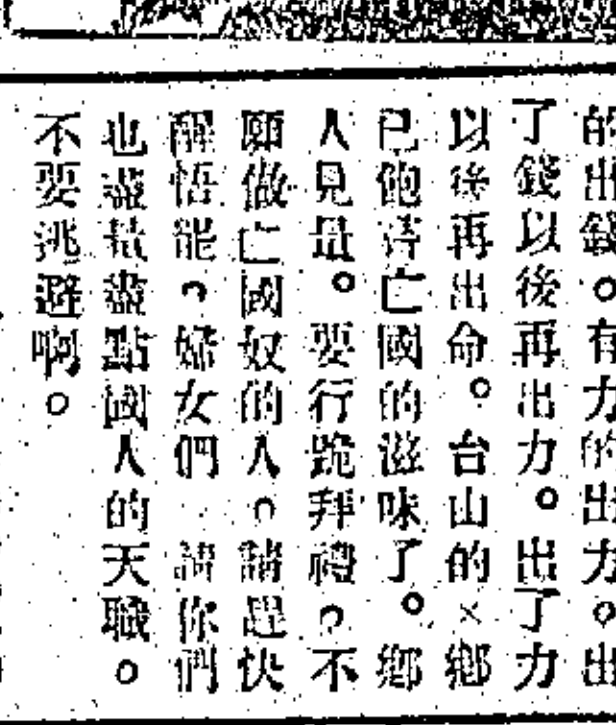 的出錢。有力的出力。出
了錢以後再出力。出了力
以後再出命。台山的×鄉
已飽嘗亡國的滋味了。鄉
人見量。要行跪拜禮。不
願做亡國奴的人。請趕快
醒悟罷。婦女們 請你們
也盡量盡點國人的天職。
不要逃避啊。